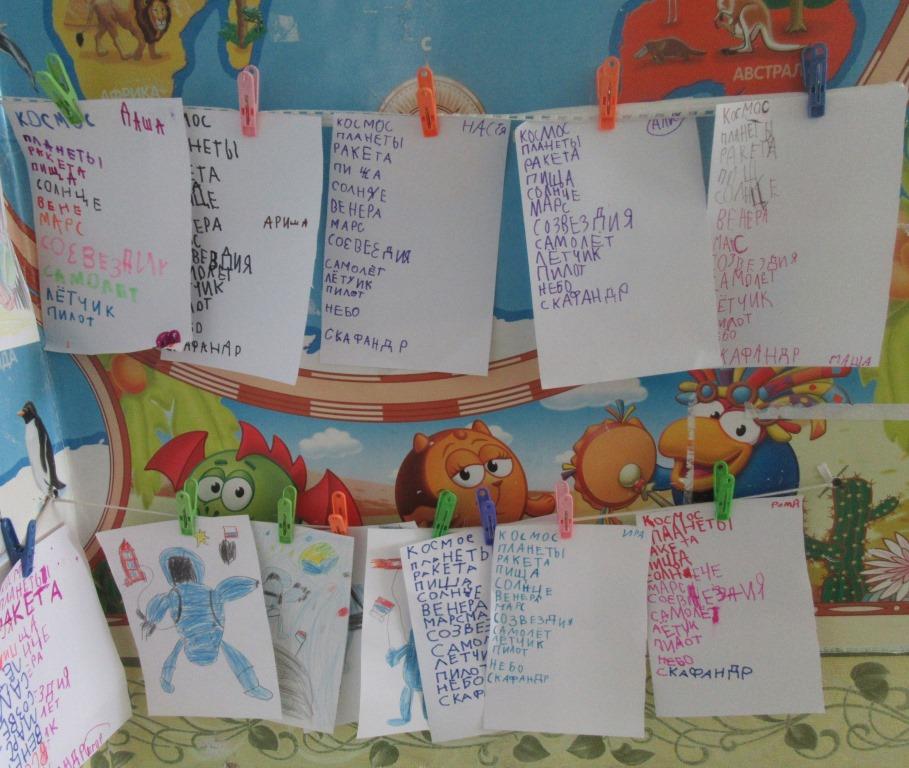 АФРИКА
С
АВСТРАЛ
КОСМОС ДАША
ПЛАНЕТЫ
РАКЕТА
ПИЩА
СОЛНЦЕ
ВЕНЕ
МАРС
СОЕВЕЗДИЯ
САМОЛЕТ
ЛЁТЧИК
ПИЛОТ
МОС
НЕТЫ
ЕТА
ЦЕ
ЕРА АРИША
С
ВЕЗДИЯ
МОЛЁТ
ЧИК
ОТ
БО
АФАНДР
КОСМОС НАСТЯ
ПЛАНЕТЫ
РАКЕТА
ПИЖА
СОЛНЦЕ
ВЕНЕРА
МАРС
СОЄВЕЗДИЯ
САМОЛЁТ
ЛЁТЧИК
ПИЛОТ
НЕБО
СКАФАНДР
КОСМОС
ПЛАНЕТЫ
РАКЕТА
ПИЩА
СОЛНЦЕ
МАРС
СОЗВЕЗДИЯ
САМОЛЁТ
ЛЁТЧИК
ПИЛОТ
НЕБО
СКАФАНДР
КОСМОС
ПЛАНЕТЫ
РАКЕТА
СОЛНЦЕ
ВЕНЕРА
МАС
СОЗВЕЗДИЯ
САМОЛЁТ
ЛЁТЧИК
ПИЛОТ
НЕБО
КАФАНДР МАША
ПЛАНЕТЫ
РАКЕТА
КОСМОС
ПЛАНЕТЫ
РАКЕТА
ПИЩА
СОЛНЦЕ
ВЕНЕРА
МАРС
СОЗВЕЗ
САМОЛ
ЛЕТЧИ
ПИЛО
НЕБО
СКАФ
КОСМОС ИРА
ПЛАНЕТЫ
РАКЕТА
ПИЩА
СОЛНЦЕ
ВЕНЕРА
МАРС
СОЗВЕЗДИЯ
САМОЛЕТ
ЛЕТЧИК
ПИЛОТ
НЕБО
СКАФАНДР
РОМА
КОСМОС
ПЛАНЕТЫ
РАКЕТА
ПИЩА
СОЛНЕЧЕ
МАРС
СОЕВЕЗДИЯ
САМОЛЕТ
ЛЕТЧИК
ПИЛОТ
НЕБО
СКАФАНДР